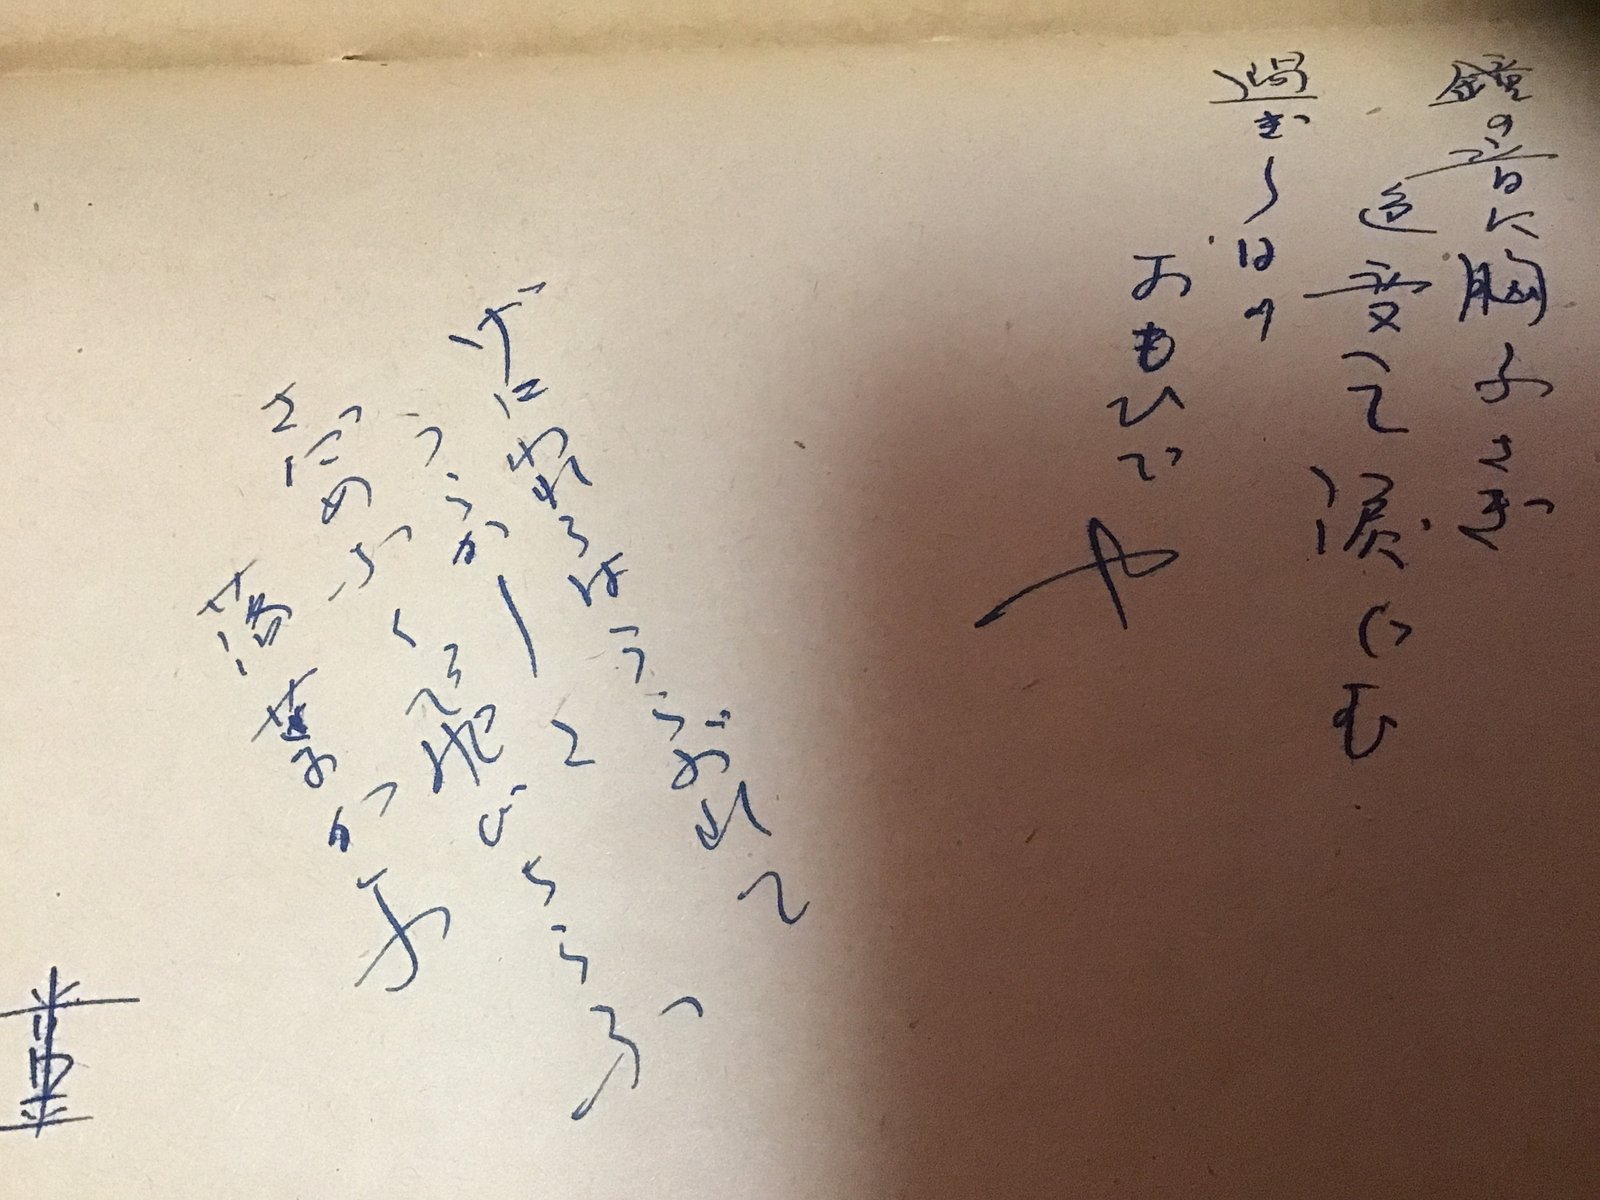 鐘の音に胸ふさぎ
色変て涙ぐむ
過ぎし日の
おもひでや
げにわれはうらぶれて
こゝかしこ
さだめなく飛びちらふ
落葉かな